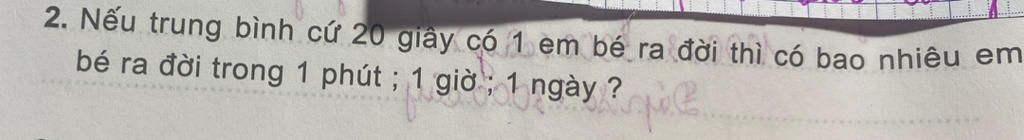 2. Nếu trung bình cứ 20 giây có 1 em bé ra đời thì có bao nhiêu em
bé ra đời trong 1 phút ; 1 giờ ; 1 ngày ?